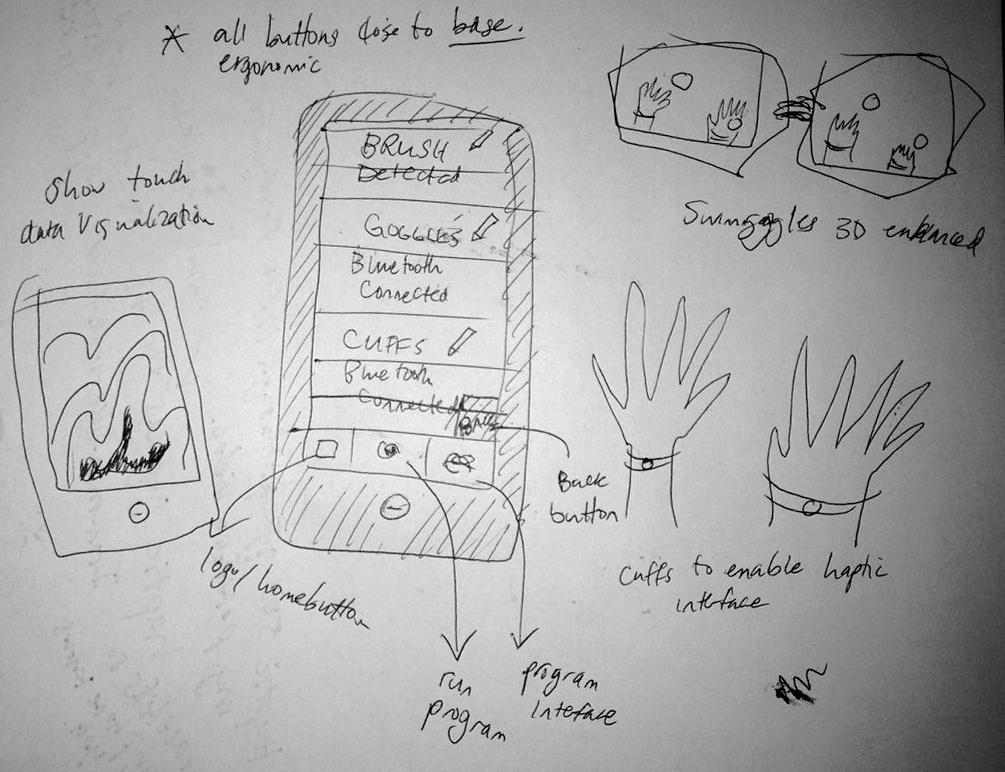 * all buttons close to base.
ergonomic
Show touch
data Visualization
BRUSH
Detected
GOGGLES
Bluetooth
Connected
CUFFS
Bluetooth
Connected
Back
button
3D enhanced
logo/homebutton
run
program
program
Inteface
Cuffs to enable haptic
interface